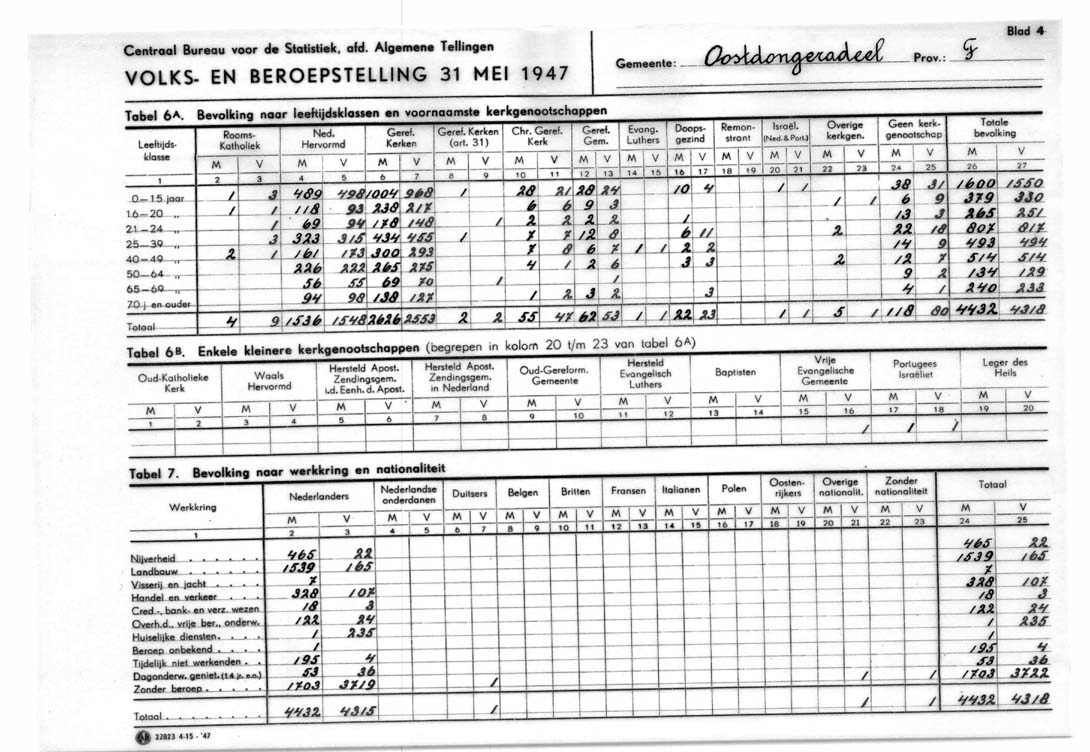 Blad 4
Centraal Bureau voor de Statistiek, afd. Algemene Tellingen
VOLKS- EN BEROEPSTELLING 31 MEI 1947
Gemeente: Oostdongeradeel Prov.: F
Tabel 6A. Bevolking naar leeftijdsklassen en voornaamste kerkgenootschappen
Leeftijds-klasse Rooms-Katholiek Ned. Hervormd Geref. Kerken Geref. Kerken (art. 31) Chr. Geref. Kerk Geref. Gem. Evang. Luthers Doops-gezind Remon-strant Israël. (Ned. & Port.) Overige kerkgen. Geen kerk-genootschap Totale bevolking
M V M V M V M V M V M V M V M V M V M V M V M V M V
1 2 3 4 5 6 7 8 9 10 11 12 13 14 15 16 17 18 19 20 21 22 23 24 25 26 27
0—15 jaar 1 3 489 498 1004 968 1 28 21 28 24 10 4 1 1 38 31 1600 1550
16—20 „ 1 1 118 93 238 217 6 6 9 3 1 1 6 9 379 330
21—24 „ 1 69 94 178 148 1 2 2 2 2 1 13 3 265 251
25—39 „ 3 323 315 434 455 1 7 7 12 8 6 11 2 22 18 807 817
40—49 „ 2 1 161 173 300 293 7 8 6 7 1 1 2 2 14 9 493 494
50—64 „ 226 222 265 275 4 1 2 6 3 3 2 12 7 514 514
65—69 „ 56 55 69 70 1 1 9 2 134 129
70 j. en ouder 94 98 138 127 1 2 3 2 3 4 1 240 233
Totaal 4 9 1536 1548 2626 2553 2 2 55 47 62 53 1 1 22 23 1 1 5 1 118 80 4432 4318
Tabel 6B. Enkele kleinere kerkgenootschappen (begrepen in kolom 20 t/m 23 van tabel 6A)
Oud-Katholieke Kerk Waals Hervormd Hersteld Apost. Zendingsgem. i.d. Eenh. d. Apost. Hersteld Apost. Zendingsgem. in Nederland Oud-Gereform. Gemeente Hersteld Evangelisch Luthers Baptisten Vrije Evangelische Gemeente Portugees Israëliet Leger des Heils
M V M V M V M V M V M V M V M V M V M V
1 2 3 4 5 6 7 8 9 10 11 12 13 14 15 16 17 18 19 20
1 1 1
Tabel 7. Bevolking naar werkkring en nationaliteit
Werkkring Nederlanders Nederlandse onderdanen Duitsers Belgen Britten Fransen Italianen Polen Oosten-rijkers Overige nationalit. Zonder nationaliteit Totaal
M V M V M V M V M V M V M V M V M V M V M V M V
1 2 3 4 5 6 7 8 9 10 11 12 13 14 15 16 17 18 19 20 21 22 23 24 25
Nijverheid . . . . . 465 22 465 22
Landbouw . . . . . 1539 165 1539 165
Visserij en jacht . . . 7 7
Handel en verkeer . . . 328 107 328 107
Cred.-, bank- en verz. wezen 18 3 18 3
Overh.d., vrije ber., onderw. 122 24 122 24
Huiselijke diensten. . . . 1 235 1 235
Beroep onbekend . . . . 1 1
Tijdelijk niet werkenden . . 195 4 195 4
Dagonderw. geniet. (14 jr. e.o.) 53 36 53 36
Zonder beroep . . . . . 1703 3719 1 1 1 1703 3722
Totaal . . . . . . . . 4432 4315 1 1 1 4432 4318
22823 4-15 - '47